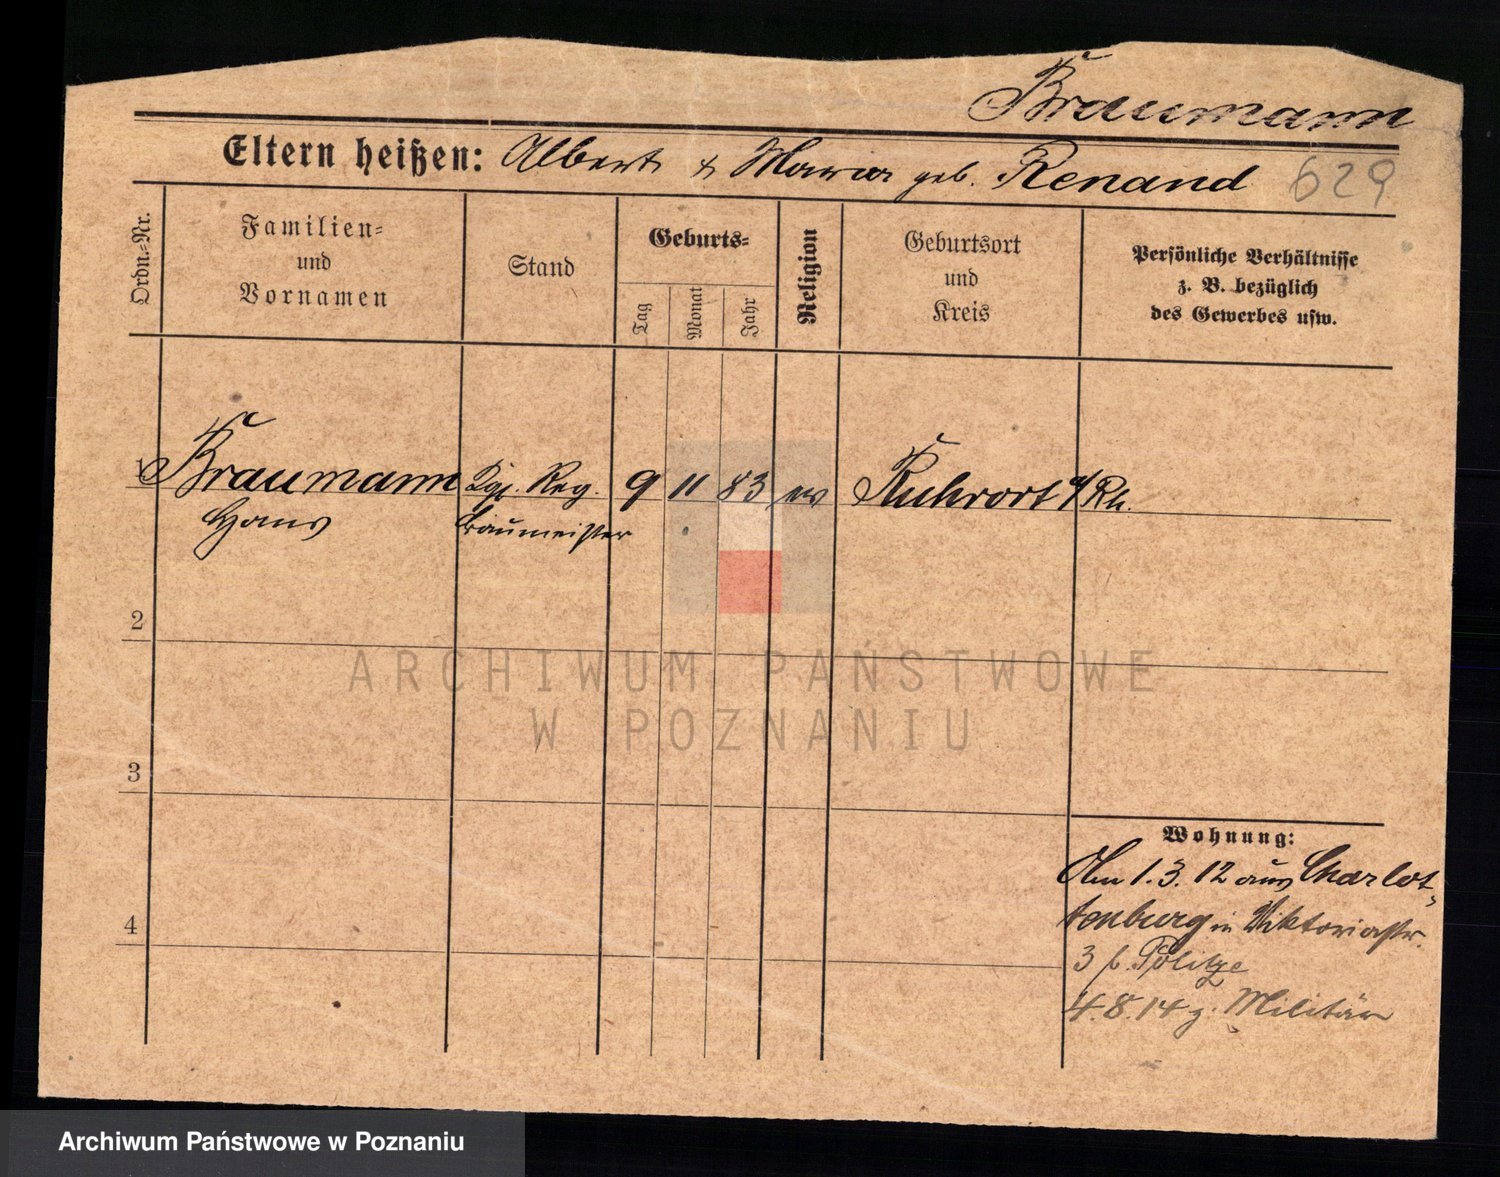 Braumann
Eltern heißen: Albert & Maria geb. Renand 629
Ordn.-Nr.
Familien-
und
Vornamen
Stand
Geburts-
Tag
Monat
Jahr
Religion
Geburtsort
und
Kreis
Persönliche Verhältnisse
z. B. bezüglich
des Gewerbes usw.
1 Braumann Kgl. Reg. 9 11 83 ev Ruhrort a/Rh.
Hans baumeister
2
3
4
ARCHIWUM PAŃSTWOWE
W POZNANIU
Wohnung:
Am 1.3.12 aus Charlot-
tenburg in Viktoriastr.
3 b. Politze
4.8.14 z. Militär
Archiwum Państwowe w Poznaniu